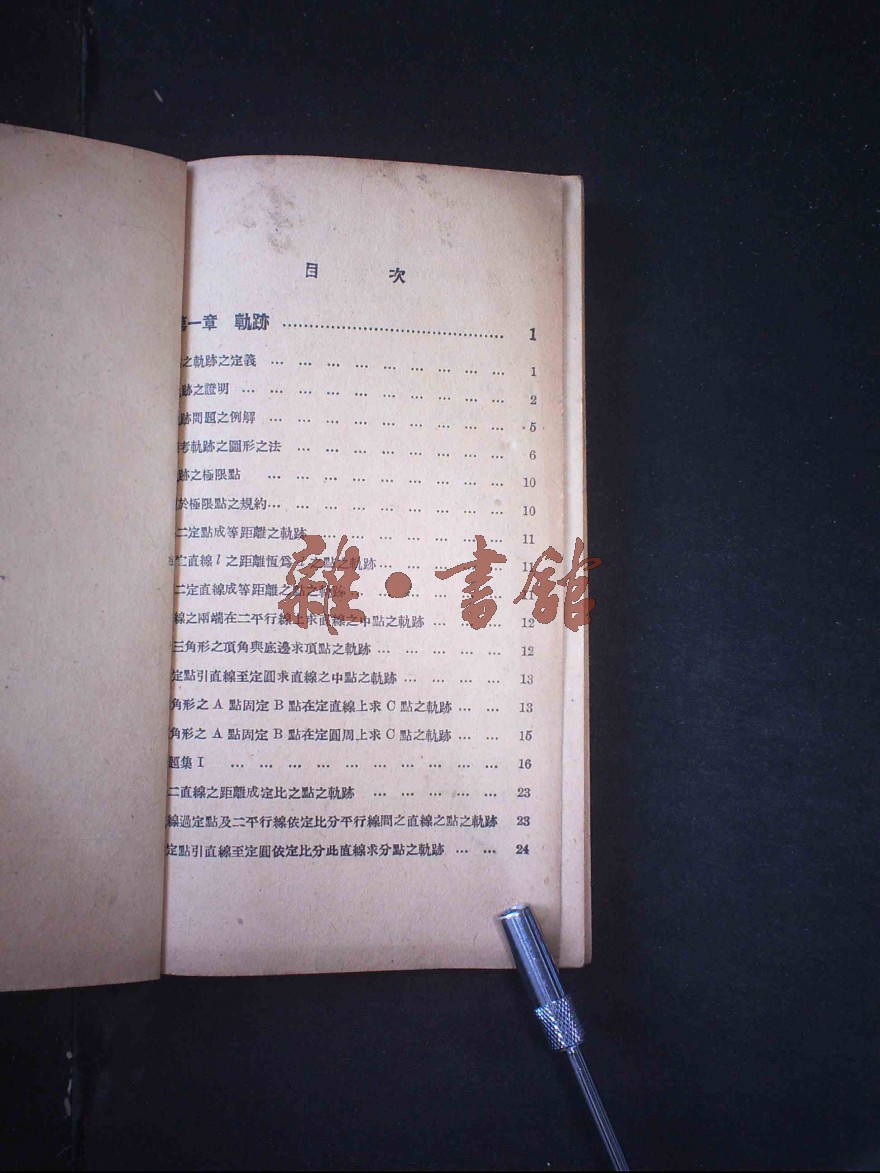 目 次
第一章 軌跡 ……………………………… 1
之軌跡之定義 … … … … … … … … … 1
跡之證明 … … … … … … … … … … 2
跡問題之例解 … … … … … … … … … 5
考軌跡之圖形之法 … … … … … … … … 6
跡之極限點 … … … … … … … … … 10
於極限點之規約… … … … … … … … … 10
二定點成等距離之軌跡 … … … … … … … 11
直線 l 之距離恆爲 之點之軌跡… … … … …
二定直線成等距離之點之軌跡… … … … … … 11
線之兩端在二平行線上求直線之中點之軌跡 … … … 12
三角形之頂角與底邊求頂點之軌跡 … … … … … 12
定點引直線至定圓求直線之中點之軌跡 … … … … 13
角形之 A 點固定 B 點在定直線上求 C 點之軌跡 … … 13
角形之 A 點固定 B 點在定圓周上求 C 點之軌跡 … … 15
題集 I … … … … … … … … … … 16
二直線之距離成定比之點之軌跡 … … … … … 23
線過定點及二平行線依定比分平行線間之直線之點之軌跡 23
定點引直線至定圓依定比分此直線求分點之軌跡 … … 24
雜·書館